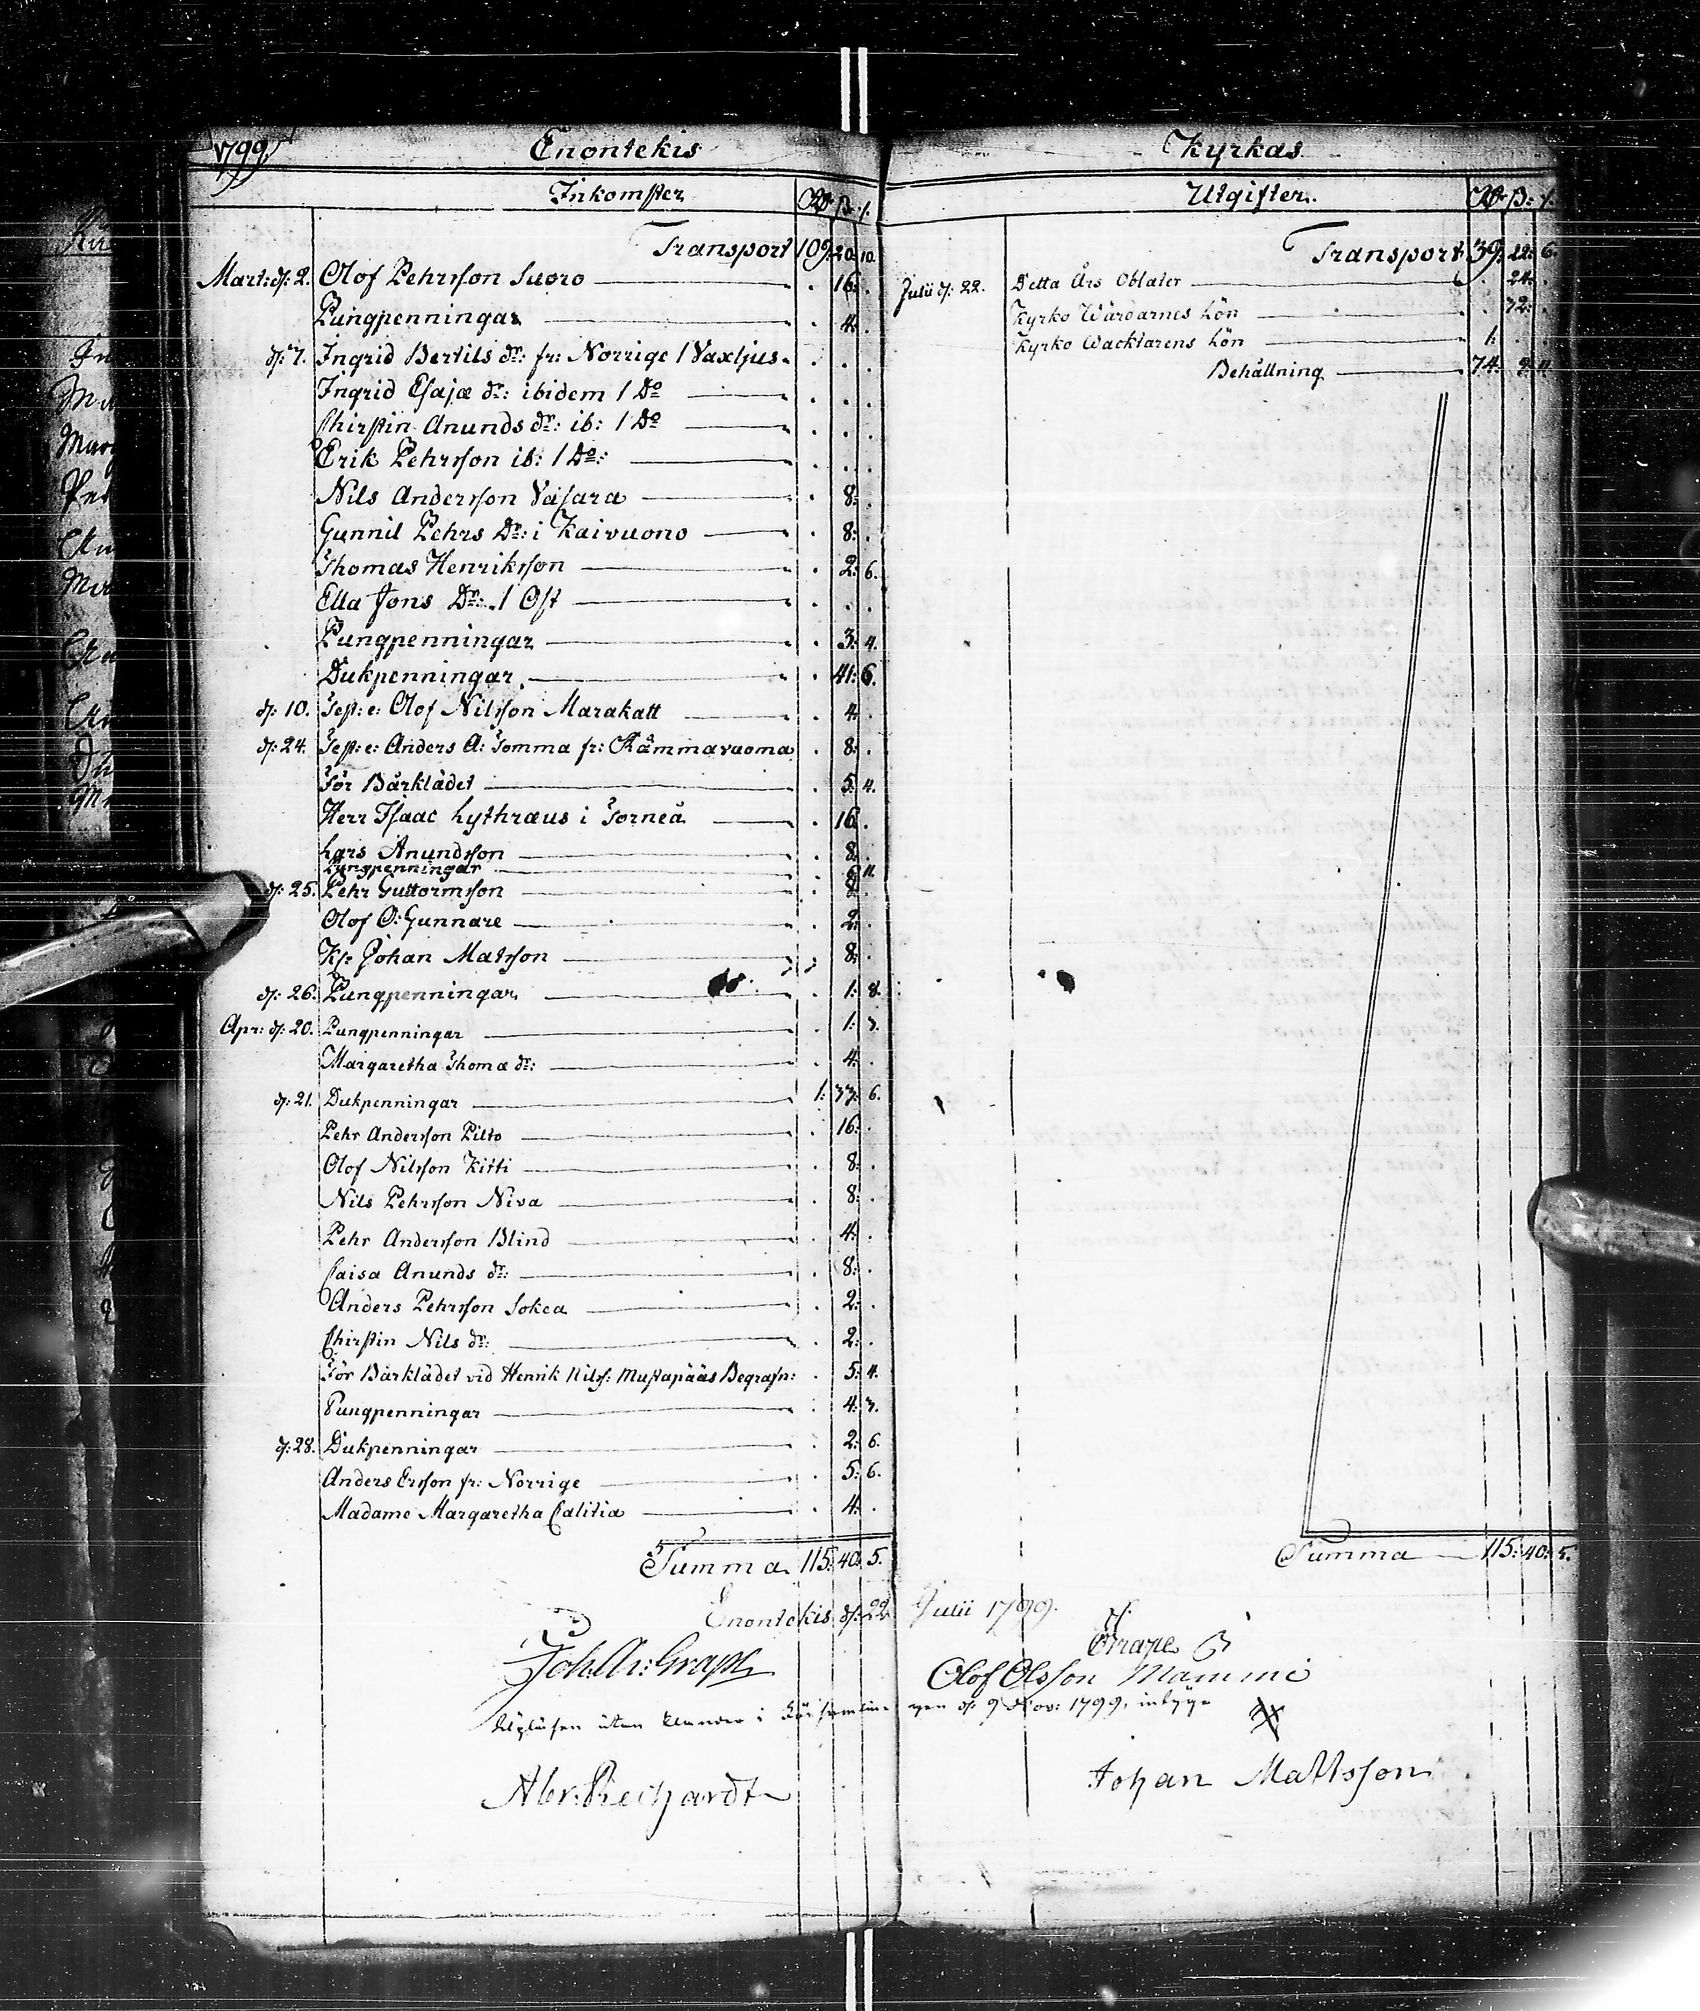 1799
Enontekis
Inkomster Rd: ß: /.
Transport 109: 20. 10.
Mart: d: 2. Olof Pehrsson Suoro . 16. .
Pungpenningar . 4. .
d: 7. Ingrid Bertils dr: fr: Norrige 1 Vaxljus . . .
Ingrid Esajæ dr: ibidem 1 Do . . .
Chirstin Anunds dr: ib: 1 Do . . .
Erik Pehrsson ib: 1 Do: . . .
Nils Andersson Vasara . 8: .
Gunnil Pehrs Dr: i Kaivuono . 8: .
Thomas Henriksson . 2: 6.
Ella Jons Dr: 1 Ost . . .
Pungpenningar . 3: 4.
Dukpenningar . 41: 6.
d: 10. Test: e: Olof Nilsson Marakatt . 4. .
d: 24. Test: e: Anders A: Tomma fr: Kämmavuoma . 8: .
För Bårklädet . 5: 4.
Herr Isaac Lythræus i Torneå . 16. .
Lars Anundsson . 8: .
Pungpenningar . 11.
d: 25. Pehr Guttormsson . 8. .
Olof O: Gunnare . 2: .
Johan Matsson . 8: .
d: 26. Pungpenningar . 1: 8.
Apr: d: 20. Pungpenningar . 1: 3.
Margaretha Thomæ dr: . 4: .
d: 21. Dukpenningar 1: 33: 6.
Pehr Andersson Pilto . 16: .
Olof Nilsson Kitti . 8: .
Nils Pehrsson Niva . 8: .
Pehr Andersson Blind . 4: .
Caisa Anunds dr: . 8: .
Anders Pehrsson Sokea . 2: .
Chirstin Nils dr: . 2: .
För Bårklädet vid Henrik Nilss: Mustapääs Begrafn: . 5: 4.
Pungpenningar . 4: 3.
d: 28. Dukpenningar . 2: 6.
Anders Ersson fr: Norrige . 5: 6.
Madame Margaretha Calitia . 4: .
Summa 115: 40: 5.
Kyrkas
Utgifter. Rd: ß: /.
Transport 39: 22: 6.
Julii d: 22. Detta Års Oblater . 24: .
Kyrko Wärdarnes Lön . 32: .
Kyrko Wacktarens Lön 1: . .
Behållning 74. 9. 11.
Summa 115: 40: 5.
Enontekis d: 22 Julii 1799.
Joh. Ar: Grape
Grape
Olof Olsson Mammi
Upläsen utan klander i Församlingen d: 9 Nov: 1799, intyga
Abr: Reichardt
Johan Mattsson